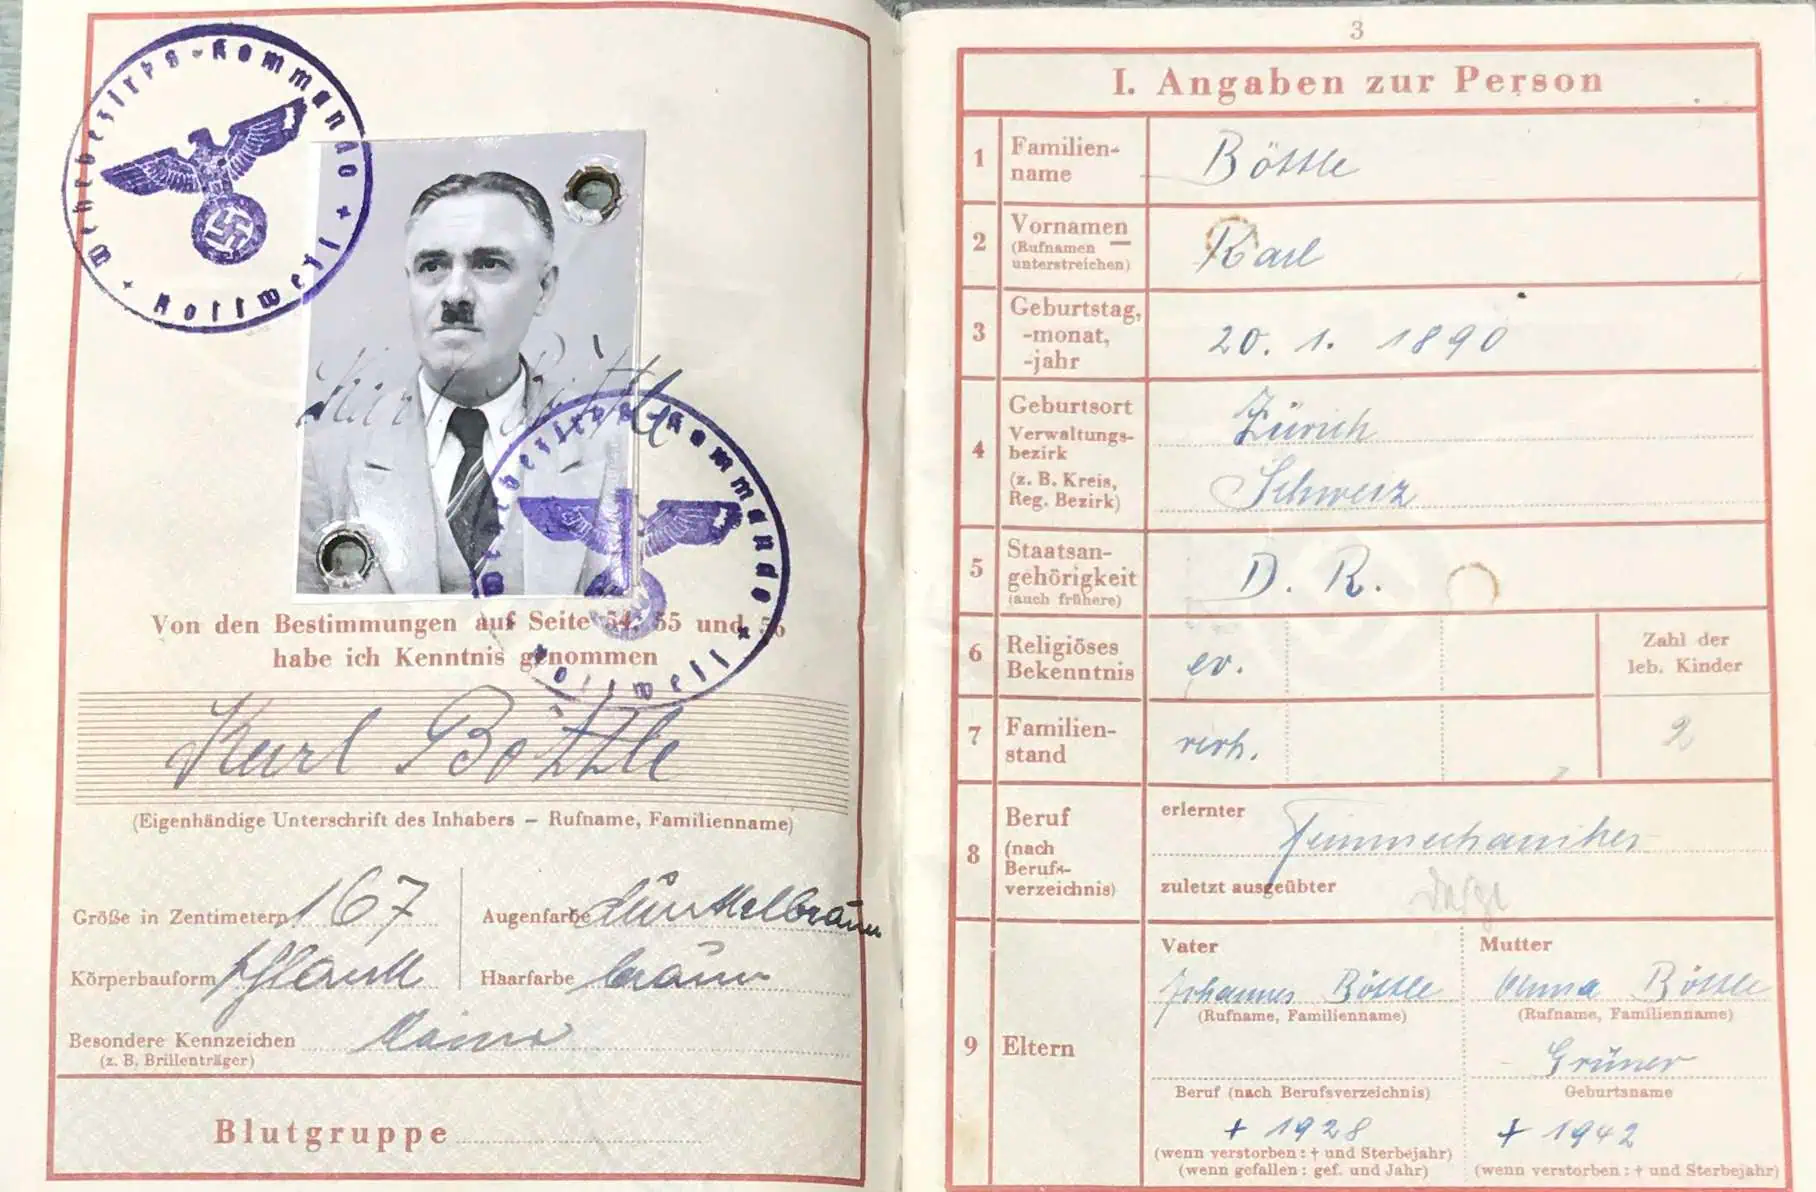 Wehrbezirks-Kommando
+ Rottweil +
Karl Böttle
Wehrbezirks-Kommando
+ Rottweil +
Von den Bestimmungen auf Seite 54, 55 und 56
habe ich Kenntnis genommen
Karl Böttle
(Eigenhändige Unterschrift des Inhabers – Rufname, Familienname)
Größe in Zentimetern 167 Augenfarbe dunkelbraun
Körperbauform schlank Haarfarbe braun
Besondere Kennzeichen keine
(z. B. Brillenträger)
Blutgruppe
3
I. Angaben zur Person
1 Familien-
name
Böttle
2 Vornamen
(Rufnamen
unterstreichen)
Karl
3 Geburtstag,
-monat,
-jahr
20. 1. 1890
4 Geburtsort
Verwaltungs-
bezirk
(z. B. Kreis,
Reg. Bezirk)
Zürich
Schweiz
5 Staatsan-
gehörigkeit
(auch frühere)
D. R.
6 Religiöses
Bekenntnis
ev.
Zahl der
leb. Kinder
7 Familien-
stand
verh.
2
8 Beruf
(nach
Berufs-
verzeichnis)
erlernter
Feinmechaniker
zuletzt ausgeübter
9 Eltern
Vater
Johannes Böttle
(Rufname, Familienname)
Beruf (nach Berufsverzeichnis)
+ 1928
(wenn verstorben: † und Sterbejahr)
(wenn gefallen: gef. und Jahr)
Mutter
Anna Böttle
(Rufname, Familienname)
Grüner
Geburtsname
+ 1942
(wenn verstorben: † und Sterbejahr)